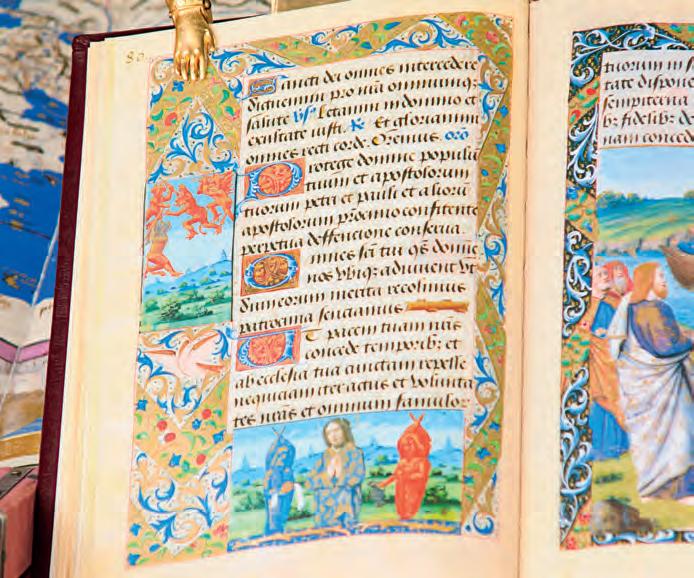 80
Sancti dei omnes intercedere
dignemini pro nra omnium q;
salute ℣s Letamini in domino et
exultate iusti. ℟ Et gloriamini
omnes recti cord. Oremus. oro
Protege domine populu
tuum et apostolorum
tuorum petri et pauli et alioru
apostolorum
perpetua deffencione conserua.
Omnes sci tui qs domie
nos vbiq; adiuuent vt
dum eorum merita recolimus
patrocinia senciamus
Et pacem tuam nris
concede temporib; et
ab ecclesia tua cunctam repelle
nequiciam iter actus et volunta
tes nras et omnium famulor
tuorum in
tate dispone
sempiterna
b; fidelib; de
nam conced